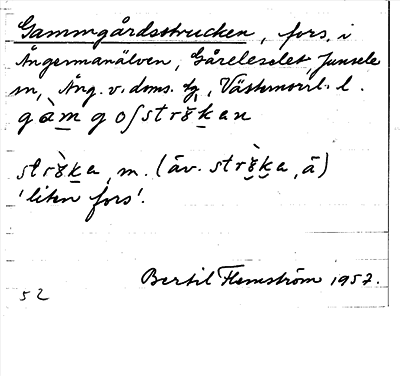 Gammgårdsstrucken, fors, i
Ångermanälven, Gåreleselet, Junsele
sn, Ång. v. doms. tg, Västernorrl. l.
gàm goʃstrɤkan
strɤ̀ka, m. (äv. strɤ̀ka, ā)
'liten fors'.
Bertil Flemström 1952.
52